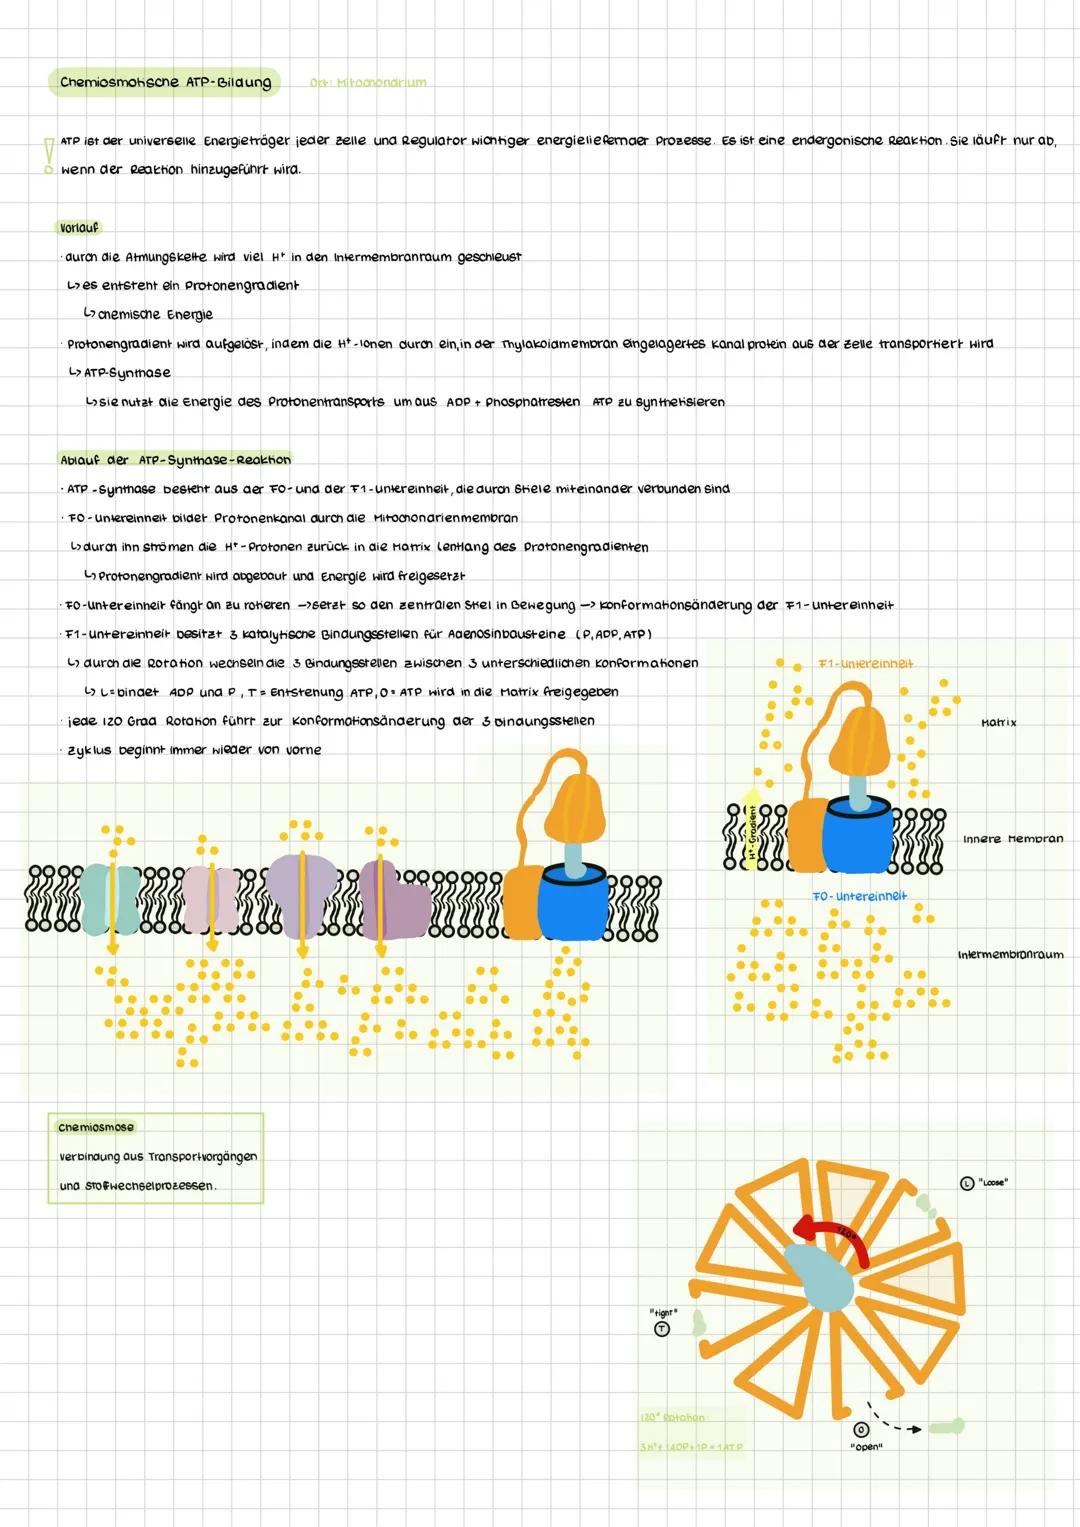 Chemiosmotische ATP-Bildung
Ort: Mitochondrium
ATP ist der universelle Energieträger jeder Zelle und Regulator wichtiger energieliefernder Prozesse. Es ist eine endergonische Reaktion. Sie läuft nur ab,
wenn der Reaktion hinzugeführt wird.
Vorlauf
· durch die Atmungskette wird viel H+ in den Intermembranraum geschleust
↳ es entsteht ein Protonengradient
↳ chemische Energie
· Protonengradient wird aufgelöst, indem die H+-Ionen durch ein, in der Thylakoidmembran eingelagertes Kanalprotein aus der Zelle transportiert wird
↳ ATP-Synthase
↳ sie nutzt die Energie des Protonentransports um aus ADP + Phosphatresten ATP zu synthetisieren
Ablauf der ATP-Synthase-Reaktion
· ATP-Synthase besteht aus der F0- und der F1-Untereinheit, die durch Stiele miteinander verbunden sind
· F0-Untereinheit bildet Protonenkanal durch die Mitochondrienmembran
↳ durch ihn strömen die H+-Protonen zurück in die Matrix (entlang des Protonengradienten
↳ Protonengradient wird abgebaut und Energie wird freigesetzt
· F0-Untereinheit fängt an zu rotieren -> setzt so den zentralen Stiel in Bewegung -> Konformationsänderung der F1-Untereinheit
· F1-Untereinheit besitzt 3 katalytische Bindungsstellen für Adenosinbausteine (P, ADP, ATP)
↳ durch die Rotation wechseln die 3 Bindungsstellen zwischen 3 unterschiedlichen Konformationen
↳ L = bindet ADP und P, T = Entstehung ATP, O = ATP wird in die Matrix freigegeben
· jede 120 Grad Rotation führt zur Konformationsänderung der 3 Bindungsstellen
· Zyklus beginnt immer wieder von vorne
F1-Untereinheit
Matrix
H+-Gradient
Innere Membran
F0-Untereinheit
Intermembranraum
Chemiosmose
Verbindung aus Transportvorgängen
und Stoffwechselprozessen.
L "Loose"
120°
"tight"
T
120° Rotation:
3H+ + 1ADP + 1P = 1ATP
O
"open"